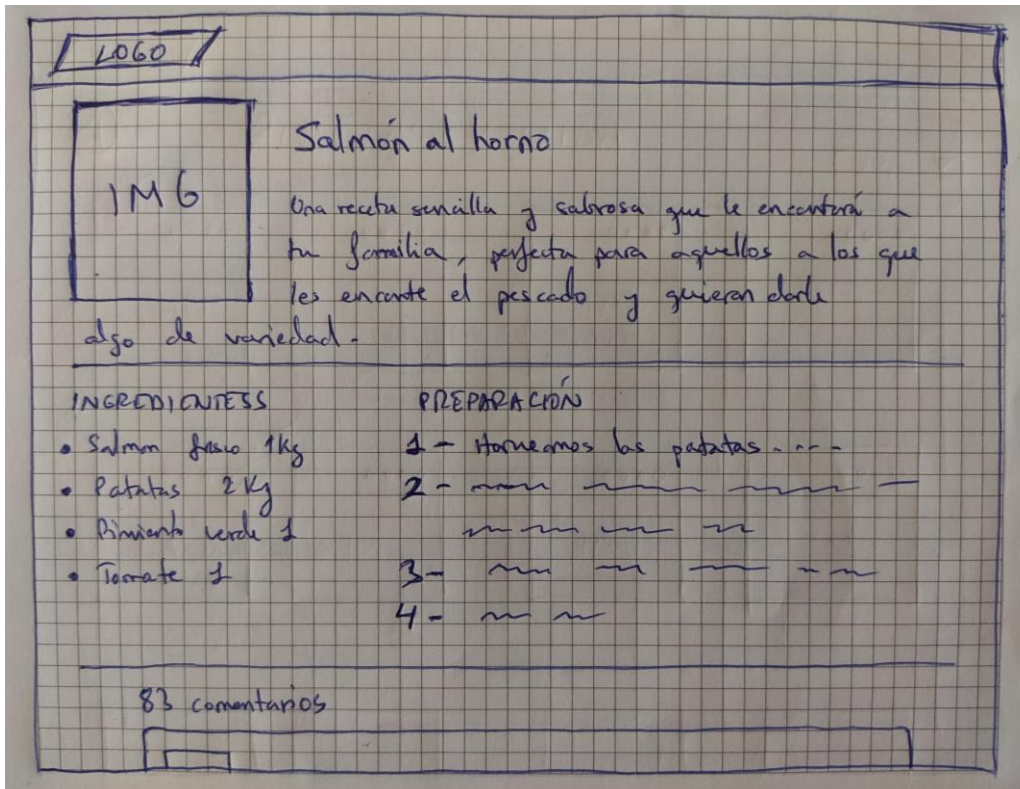 LOGO
IMG
Salmón al horno
Una receta sencilla y sabrosa que le encantará a
tu familia, perfecta para aquellos a los que
les encante el pescado y quieran darle
algo de variedad.
INGREDIENTESS
• Salmon fresco 1Kg
• Patatas 2Kg
• Pimiento verde 1
• Tomate 1
PREPARACIÓN
1 - Horneamos las patatas - - - -
2 -
3 -
4 -
83 comentarios